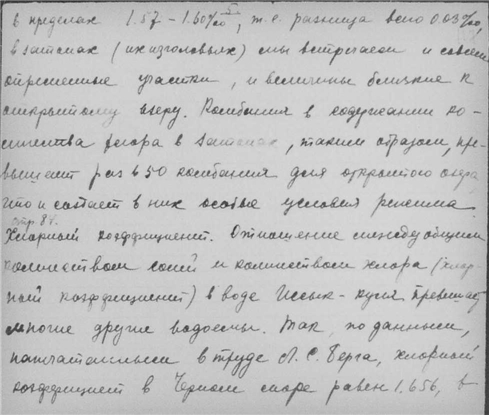 в пределах 1.57 - 1.60‰, т.е. разница всего 0.03‰,
в затонах (их изголовьях) мы встречаем и совсем
опресненные участки, и величины близкие к
открытому озеру. Колебания в содержании ко-
личества хлора в затонах, таким образом, пре-
вышает раз в 50 колебания для открытого озера
что и создает в них особые условия режима
стр. 8
Хлорный коэффициент. Отношение между общим
количеством солей и количеством хлора (хлор-
ный коэффициент) в воде Иссык-куля превышает
многие другие водоемы. Так, по данным,
напечатанным в труде Л.С. Берга, хлорный
коэффициент в Черном море равен 1.656, в